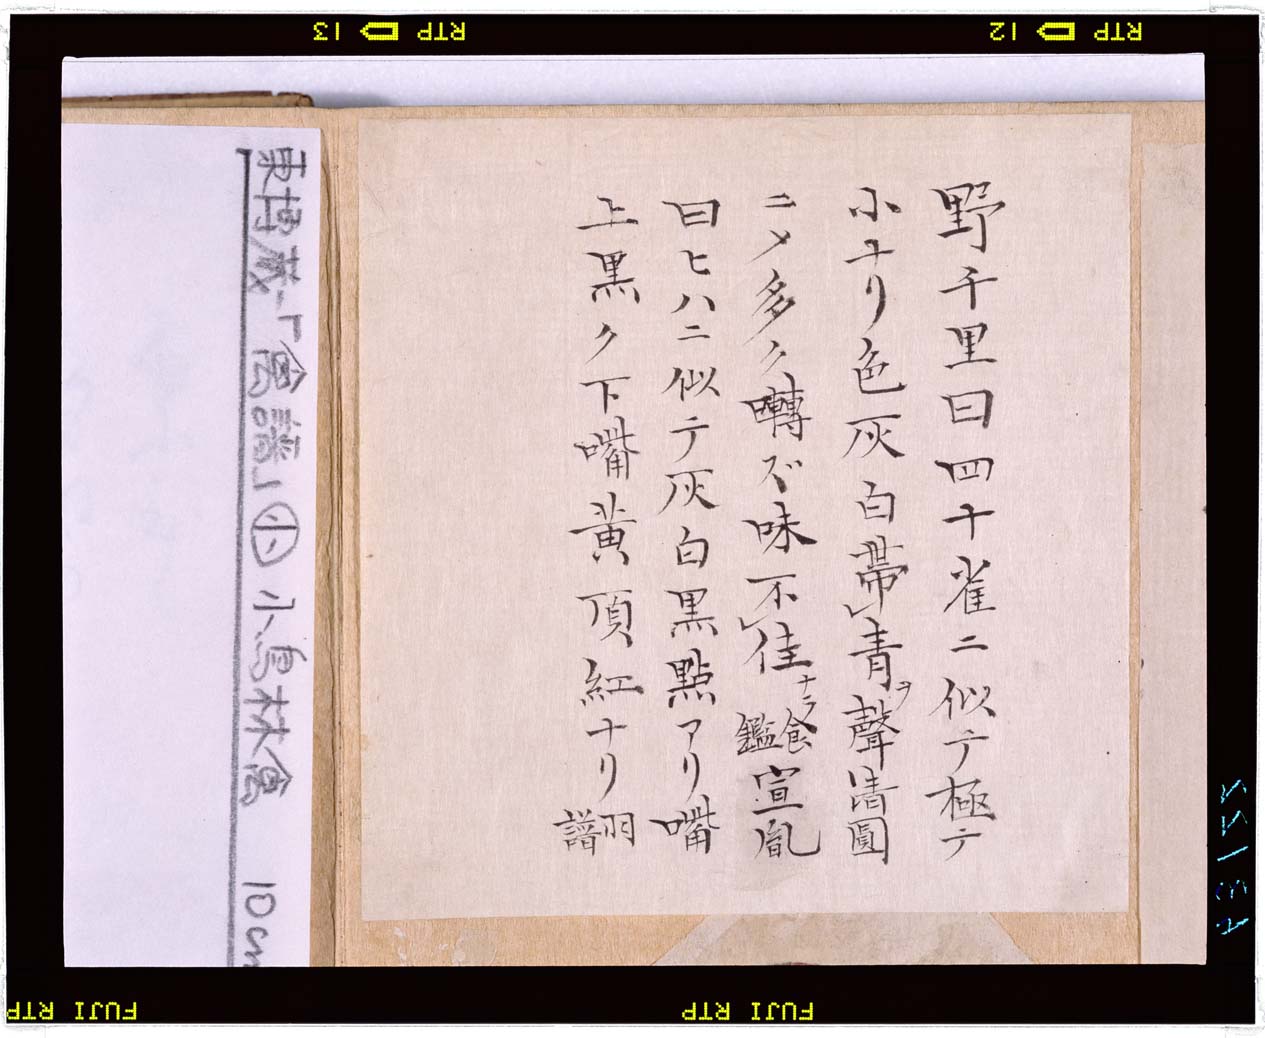 野千里曰四十雀ニ似テ極テ
小ナリ色灰白帯レ青ヲ聲清圓
ニメ多ク囀ズ味不レ佳ナラ食鑑宣胤
曰ヒハニ似テ灰白黒點アリ嘴
上黒ク下嘴黄頂紅ナリ羽譜
東博蔵「禽譜」小 小鳥林禽 10cm
RTP 13
RTP 12
FUJI RTP
FUJI RTP